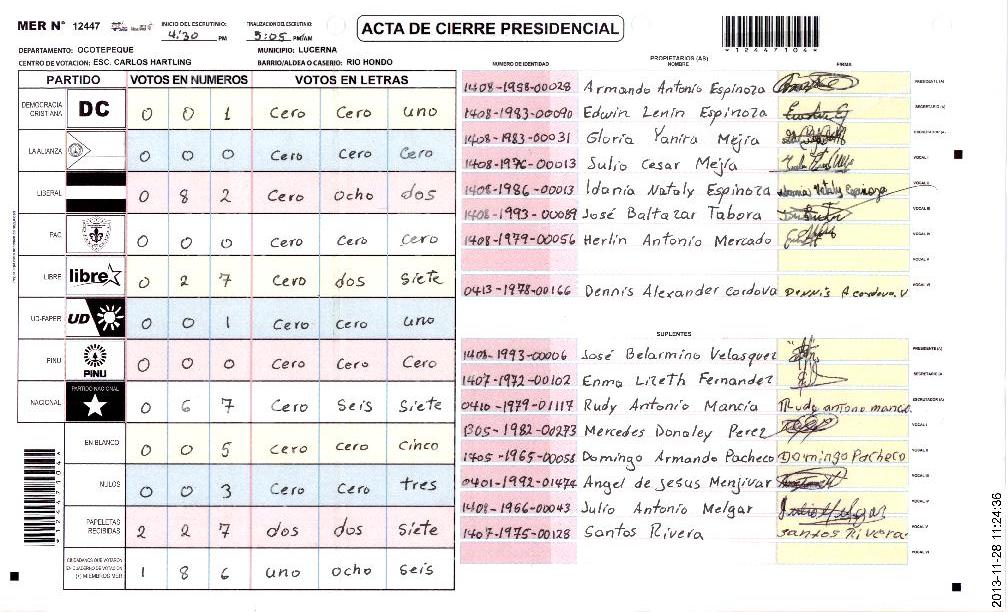 MER N° 12447 INICIO DEL ESCRUTINIO: 4:30 PM FINALIZACION DEL ESCRUTINIO: 5:05 PM/AM
ACTA DE CIERRE PRESIDENCIAL
*12447104*
DEPARTAMENTO: OCOTEPEQUE MUNICIPIO: LUCERNA
CENTRO DE VOTACION: ESC. CARLOS HARTLING BARRIO/ALDEA O CASERIO: RIO HONDO
PARTIDO VOTOS EN NUMEROS VOTOS EN LETRAS
DEMOCRACIA CRISTIANA DC 0 0 1 Cero Cero uno
LA ALIANZA 0 0 0 Cero Cero Cero
LIBERAL 0 8 2 Cero Ocho dos
PAC 0 0 0 Cero Cero Cero
LIBRE libre 0 2 7 Cero dos Siete
UD-FAPER UD 0 0 1 Cero Cero uno
PINU PINU 0 0 0 Cero Cero Cero
NACIONAL PARTIDO NACIONAL 0 6 7 Cero Seis Siete
EN BLANCO 0 0 5 Cero cero Cinco
NULOS 0 0 3 Cero Cero tres
PAPELETAS RECIBIDAS 2 2 7 dos dos Siete
CIUDADANOS QUE VOTARON EN CUADERNO DE VOTACION (+) MIEMBROS MER 1 8 6 uno ocho seis
*12447104*
PROPIETARIOS (AS)
NUMERO DE IDENTIDAD NOMBRE FIRMA
1408-1958-00028 Armando Antonio Espinoza PRESIDENTE (A)
1408-1983-00090 Edwin Lenin Espinoza SECRETARIO (A)
1408-1983-00031 Gloria Yanira Mejia ESCRUTADOR (A)
1408-1976-00013 Julio Cesar Mejía VOCAL I
1408-1986-00013 Idania Nataly Espinoza Idania Nataly Espinoza VOCAL II
1408-1993-00089 José Baltazar Tabora VOCAL III
1408-1979-00056 Herlin Antonio Mercado VOCAL IV
VOCAL V
0413-1978-00166 Dennis Alexander cordova Dennis A cordova.V VOCAL VI
SUPLENTES
1408-1993-00006 José Belarmino Velasquez PRESIDENTE (A)
1407-1972-00102 Enma Lizeth Fernandez SECRETARIO (A)
0410-1979-01117 Rudy Antonio Mancia Rudy antono mancia ESCRUTADOR (A)
1305-1982-00273 Mercedes Donaley Perez VOCAL I
1405-1965-00058 Domingo Armando Pacheco Domingo Pacheco VOCAL II
0401-1992-01474 Angel de Jesus Menjivar VOCAL III
1408-1966-00043 Julio Antonio Melgar VOCAL IV
1407-1975-00128 Santos Rivera santos Rivera VOCAL V
VOCAL VI
2013-11-28 11:24:36